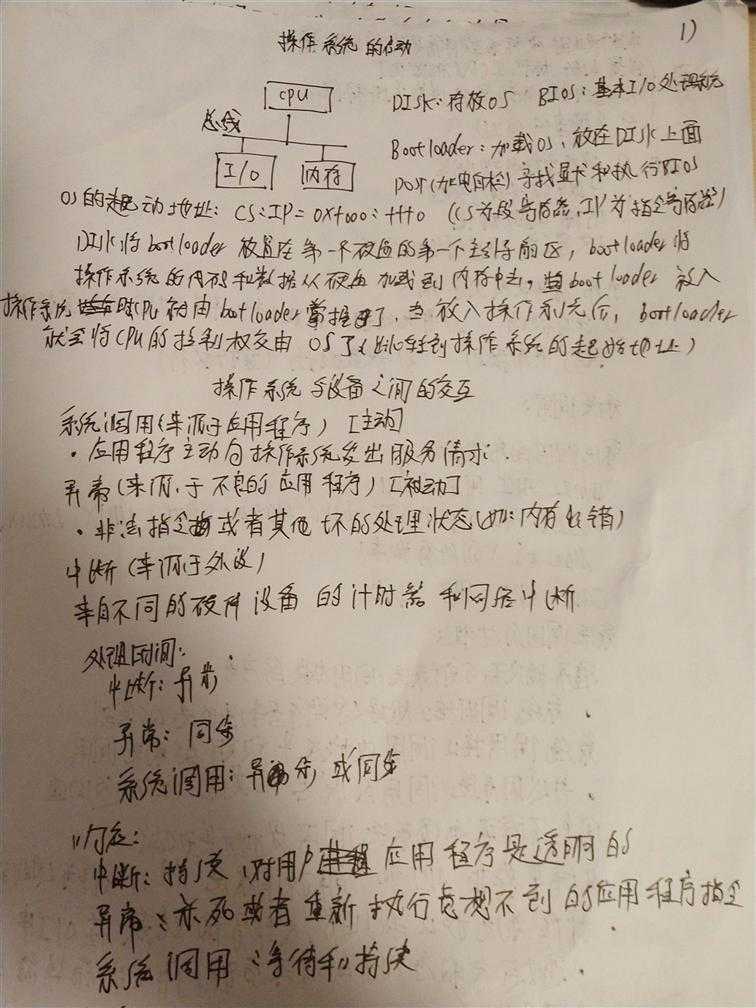 1)
操作系统的启动
CPU
总线
I/O 内存
DISK:存放OS BIOS:基本I/O处理系统
Bootloader:加载OS,放在DISK上面
POST(加电自检)寻找显卡和执行BIOS
OS的起动地址:CS:IP=0xf000:fff0 (CS为段寄存器,IP为指令寄存器)
DISK将bootloader放置在第一个硬盘的第一个主引导扇区,bootloader将
操作系统的代码和数据从硬盘加载到内存中去,当bootloader放入
操作系统时CPU就由bootloader掌握了,当放入操作系统后,bootloader
就会将CPU的控制权交由OS了(跳转到操作系统的起始地址)
操作系统与设备之间的交互
系统调用(来源于应用程序)[主动]
·应用程序主动向操作系统发出服务请求
异常(来源于不良的应用程序)[被动]
·非法指令或者其他坏的处理状态(如:内存出错)
中断(来源于外设)
来自不同的硬件设备的计时器和网络中断
处理时间:
中断:异步
异常:同步
系统调用:异步或同步
响应:
中断:持续,对用户应用程序是透明的
异常:杀死或者重新执行意想不到的应用程序指令
系统调用:等待和持续